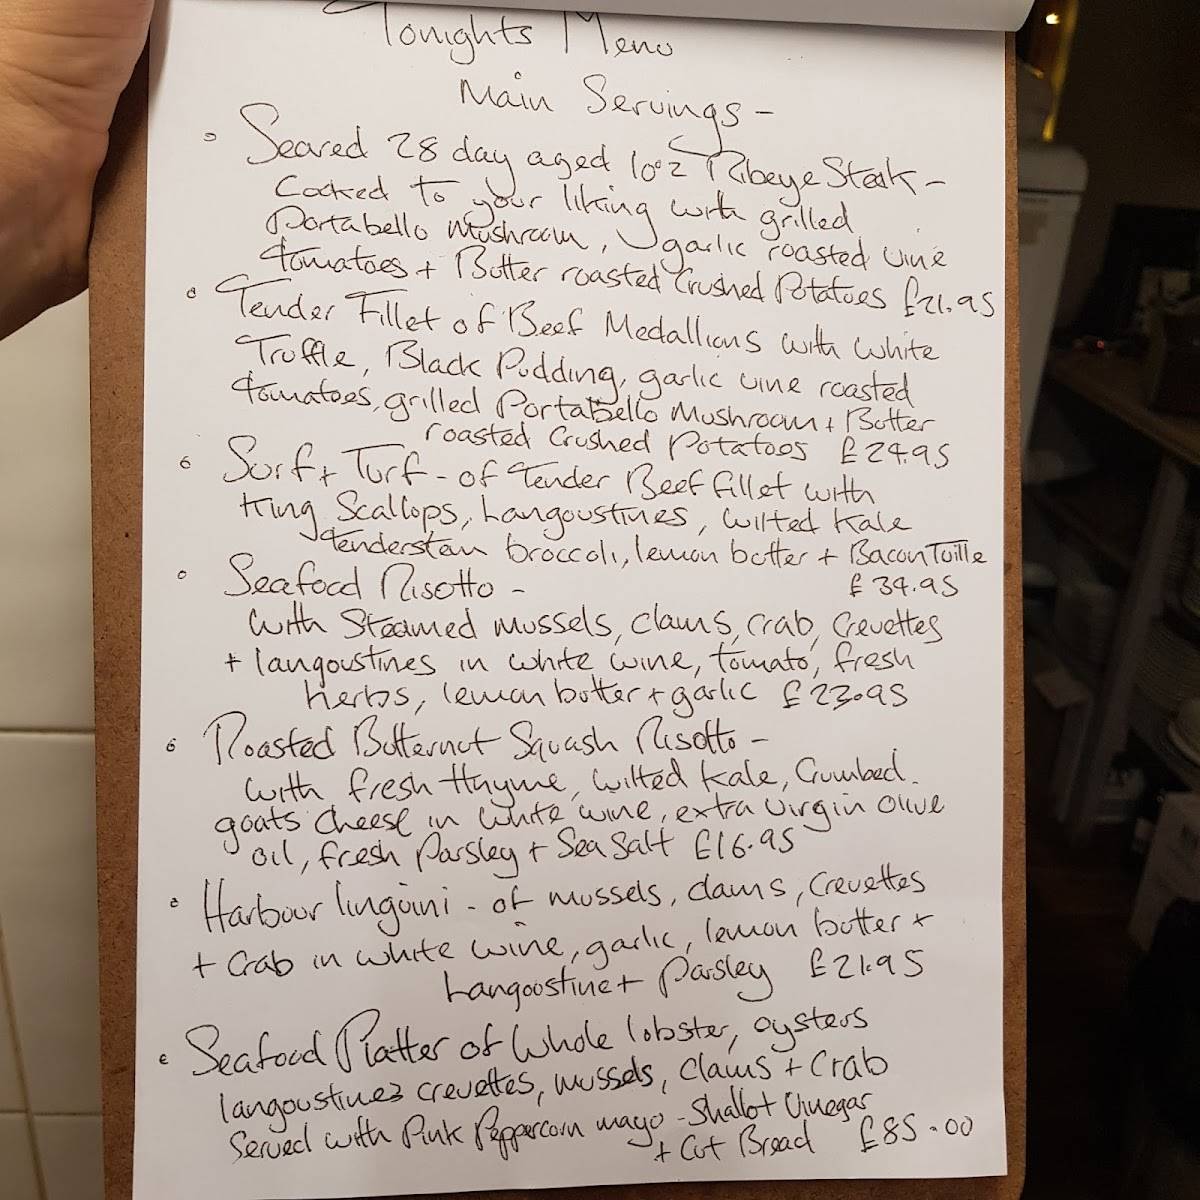 Tonights Menu
Main Servings -
Seared 28 day aged 10oz Ribeye Steak -
Cooked to your liking with grilled
Portabello Mushroom, garlic roasted vine
tomatoes + Butter roasted Crushed Potatoes £21.95
Tender Fillet of Beef Medallions with white
Truffle, Black Pudding, garlic vine roasted
tomatoes, grilled Portabello Mushroom + Butter
roasted Crushed Potatoes £24.95
Surf + Turf - of Tender Beef fillet with
King Scallops, Langoustines, wilted Kale
tenderstem broccoli, lemon butter + Bacon Tuille
£34.95
Seafood Risotto -
with Steamed mussels, clams, crab, Crevettes
+ langoustines in white wine, tomato, fresh
herbs, lemon butter + garlic £23.95
Roasted Butternut Squash Risotto -
with fresh thyme, wilted kale, Crumbed
goats cheese in white wine, extra virgin olive
oil, fresh parsley + Sea Salt £16.95
Harbour linguini - of mussels, clams, Crevettes
+ Crab in white wine, garlic, lemon butter +
Langoustine + Parsley £21.95
Seafood Platter of Whole lobster, oysters
langoustines crevettes, mussels, Clams + Crab
Served with Pink Peppercorn mayo - Shallot Vinegar
+ Cut Bread £85.00